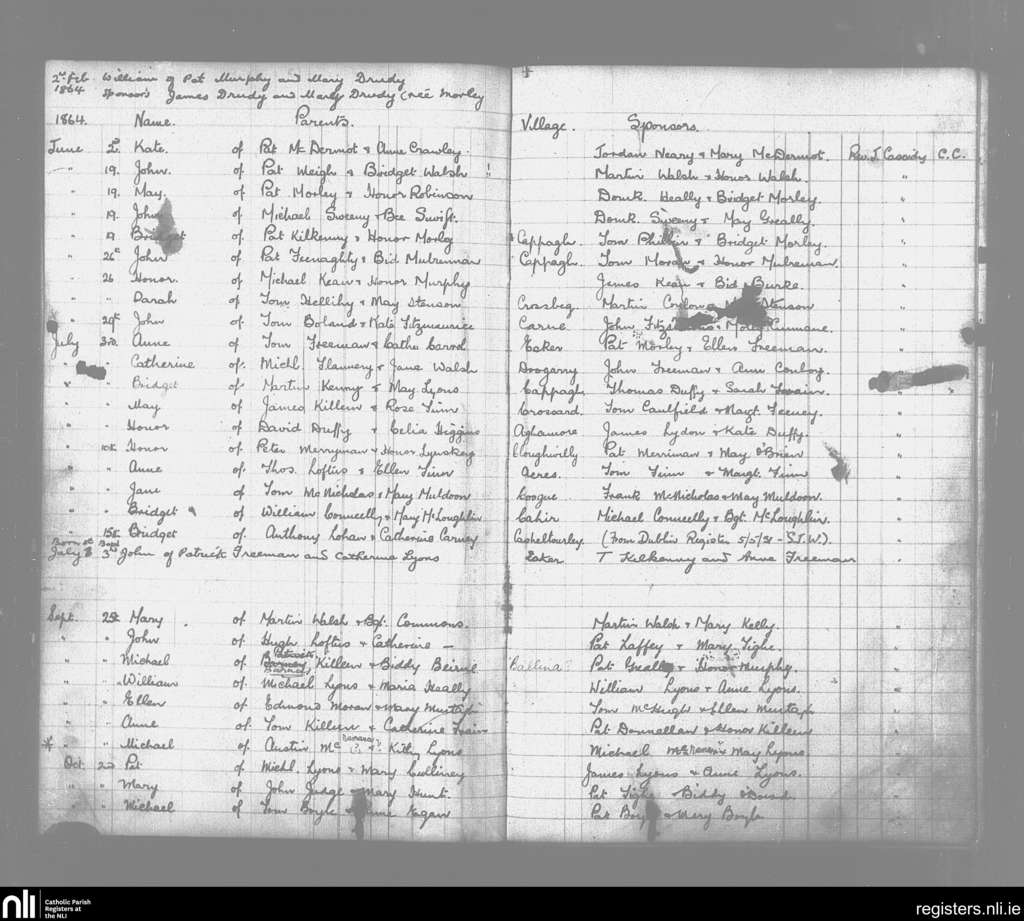 2nd Feb William of Pat Murphy and Mary Drudy
1864 Sponsors James Drudy and Mary Drudy (née Morley
1864. Name. Parents. Village. Sponsors.
June Kate. of Pat McDermot & Anne Crawley. Jordan Neary & Mary McDermot. Rev. J. Cassidy C.C.
" 19. John. of Pat Weigh & Bridget Walsh Martin Walsh & Honor Walsh. "
" 19. May. of Pat Morley & Honor Robinson Domk. Heally & Bridget Morley. "
" 19. John of Michael Sweeny & Bee Swift. Domk. Sweeny & May Greally. "
" 19 Bridget of. Pat Kilkenny & Honor Morley Cappagh. Tom & Bridget Morley. "
" 26th John of Pat Feenaghty & Bid Mulrennan Cappagh. Tom Moran & Honor Mulrenan. "
" 26 Honor. of Michael Kean & Honor Murphy James Kean & Bid Burke. "
" " Sarah of Tom Hellihy & May Stenson Crossbeg. Martin Stenson "
" 29th John of Tom Boland & Kate Fitzmaurice Carne. John "
July 3rd. Anne of Tom Freeman & Cathe Carrol Eaker Pat Morley & Ellen Freeman. "
" Catherine of. Michl. Flannery & Jane Walsh Doogarry John Freeman & Ann Conboy. "
" " Bridget of. Martin Kenny & May Lyons Cappagh. Thomas Duffy & Sarah "
" " May of James Killeen & Rose Finn Crossard. Tom Caulfield & Margt. Feeney. "
" " Honor of David Duffy & Celia Higgins Aghamore James Lydon & Kate Duffy. "
" 10th Honor of Peter Merryman & Honor Lynskey Cloughwilly Pat Merriman & May O'Brien "
" " Anne of. Thos. Loftus & Ellen Finn Acres. Tom Finn & Margt. Finn "
" " Jane of Tom McNicholas & Mary Muldoon Coogue Frank McNicholas & May Muldoon. "
" " Bridget of William Connelly & Mary McLoughlin Cahir Michael Connelly & Bgt. McLoughlin. "
" 15th Bridget of. Anthony Lohan & Catherine Carney (From Dublin Register 5/5/31 - S.J.W.). "
Born 2nd Bapd
July 3rd John of Patrick Freeman and Catherine Lyons Eaker T Kilkenny and Anne Freeman "
Sept. Mary of Martin Walsh & Bgt. Commons. Martin Walsh & Mary Kelly. "
" " John of Hugh Loftus & Catherine — Pat Laffey & Mary Tighe. "
" " Michael of Patrick Killeen & Biddy Beirne Ballina? Pat Greally & Honor Murphy. "
" " William of. Michael Lyons & Maria Heally William Lyons & Anne Lyons. "
" " Ellen of. Edmond Moran & Mary Murtagh Tom McHugh & Ellen Murtagh "
" " Anne of. Tom Killeen & Catherine Pat Donnellan & Honor Killeen "
* " " Michael of Austin Mc & Kitty Lyons Michael May Lyons "
Oct. 2nd Pat of Michl. Lyons & Mary Culliney James Lyons & Anne Lyons. "
" " Mary of John Judge & Mary Hunt. Pat Tighe & Biddy "
" " Michael of Tom Boyle & Kegan Pat Boyle & Mary Boyle "
nli Catholic Parish
Registers at
the NLI
registers.nli.ie